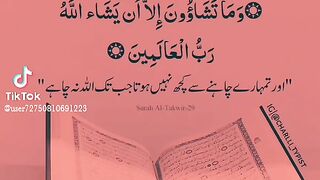 وَمَا تَشَاؤُونَ إِلَّا أَن يَشَاء اللَّهُ
رَبُّ الْعَالَمِينَ
"اور تمہارے چاہنے سے کچھ نہیں ہوتا جب تک اللہ نہ چاہے"
TikTok
@user72750810691223
Surah Al-Takwir-29
IG|@CHARLLI.TYPIST